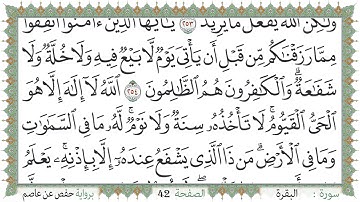 وَلَٰكِنَّ ٱللَّهَ يَفْعَلُ مَا يُرِيدُ ٢٥٣ يَٰٓأَيُّهَا ٱلَّذِينَ ءَامَنُوٓا۟ أَنفِقُوا۟
مِمَّا رَزَقْنَٰكُم مِّن قَبْلِ أَن يَأْتِىَ يَوْمٌ لَّا بَيْعٌ فِيهِ وَلَا خُلَّةٌ وَلَا
شَفَٰعَةٌ ۗ وَٱلْكَٰفِرُونَ هُمُ ٱلظَّٰلِمُونَ ٢٥٤ ٱللَّهُ لَآ إِلَٰهَ إِلَّا هُوَ
ٱلْحَىُّ ٱلْقَيُّومُ ۚ لَا تَأْخُذُهُۥ سِنَةٌ وَلَا نَوْمٌ ۚ لَّهُۥ مَا فِى ٱلسَّمَٰوَٰتِ
وَمَا فِى ٱلْأَرْضِ ۗ مَن ذَا ٱلَّذِى يَشْفَعُ عِندَهُۥٓ إِلَّا بِإِذْنِهِۦ ۚ يَعْلَمُ
سورة : البقرة الصفحة 42 برواية حفص عن عاصم